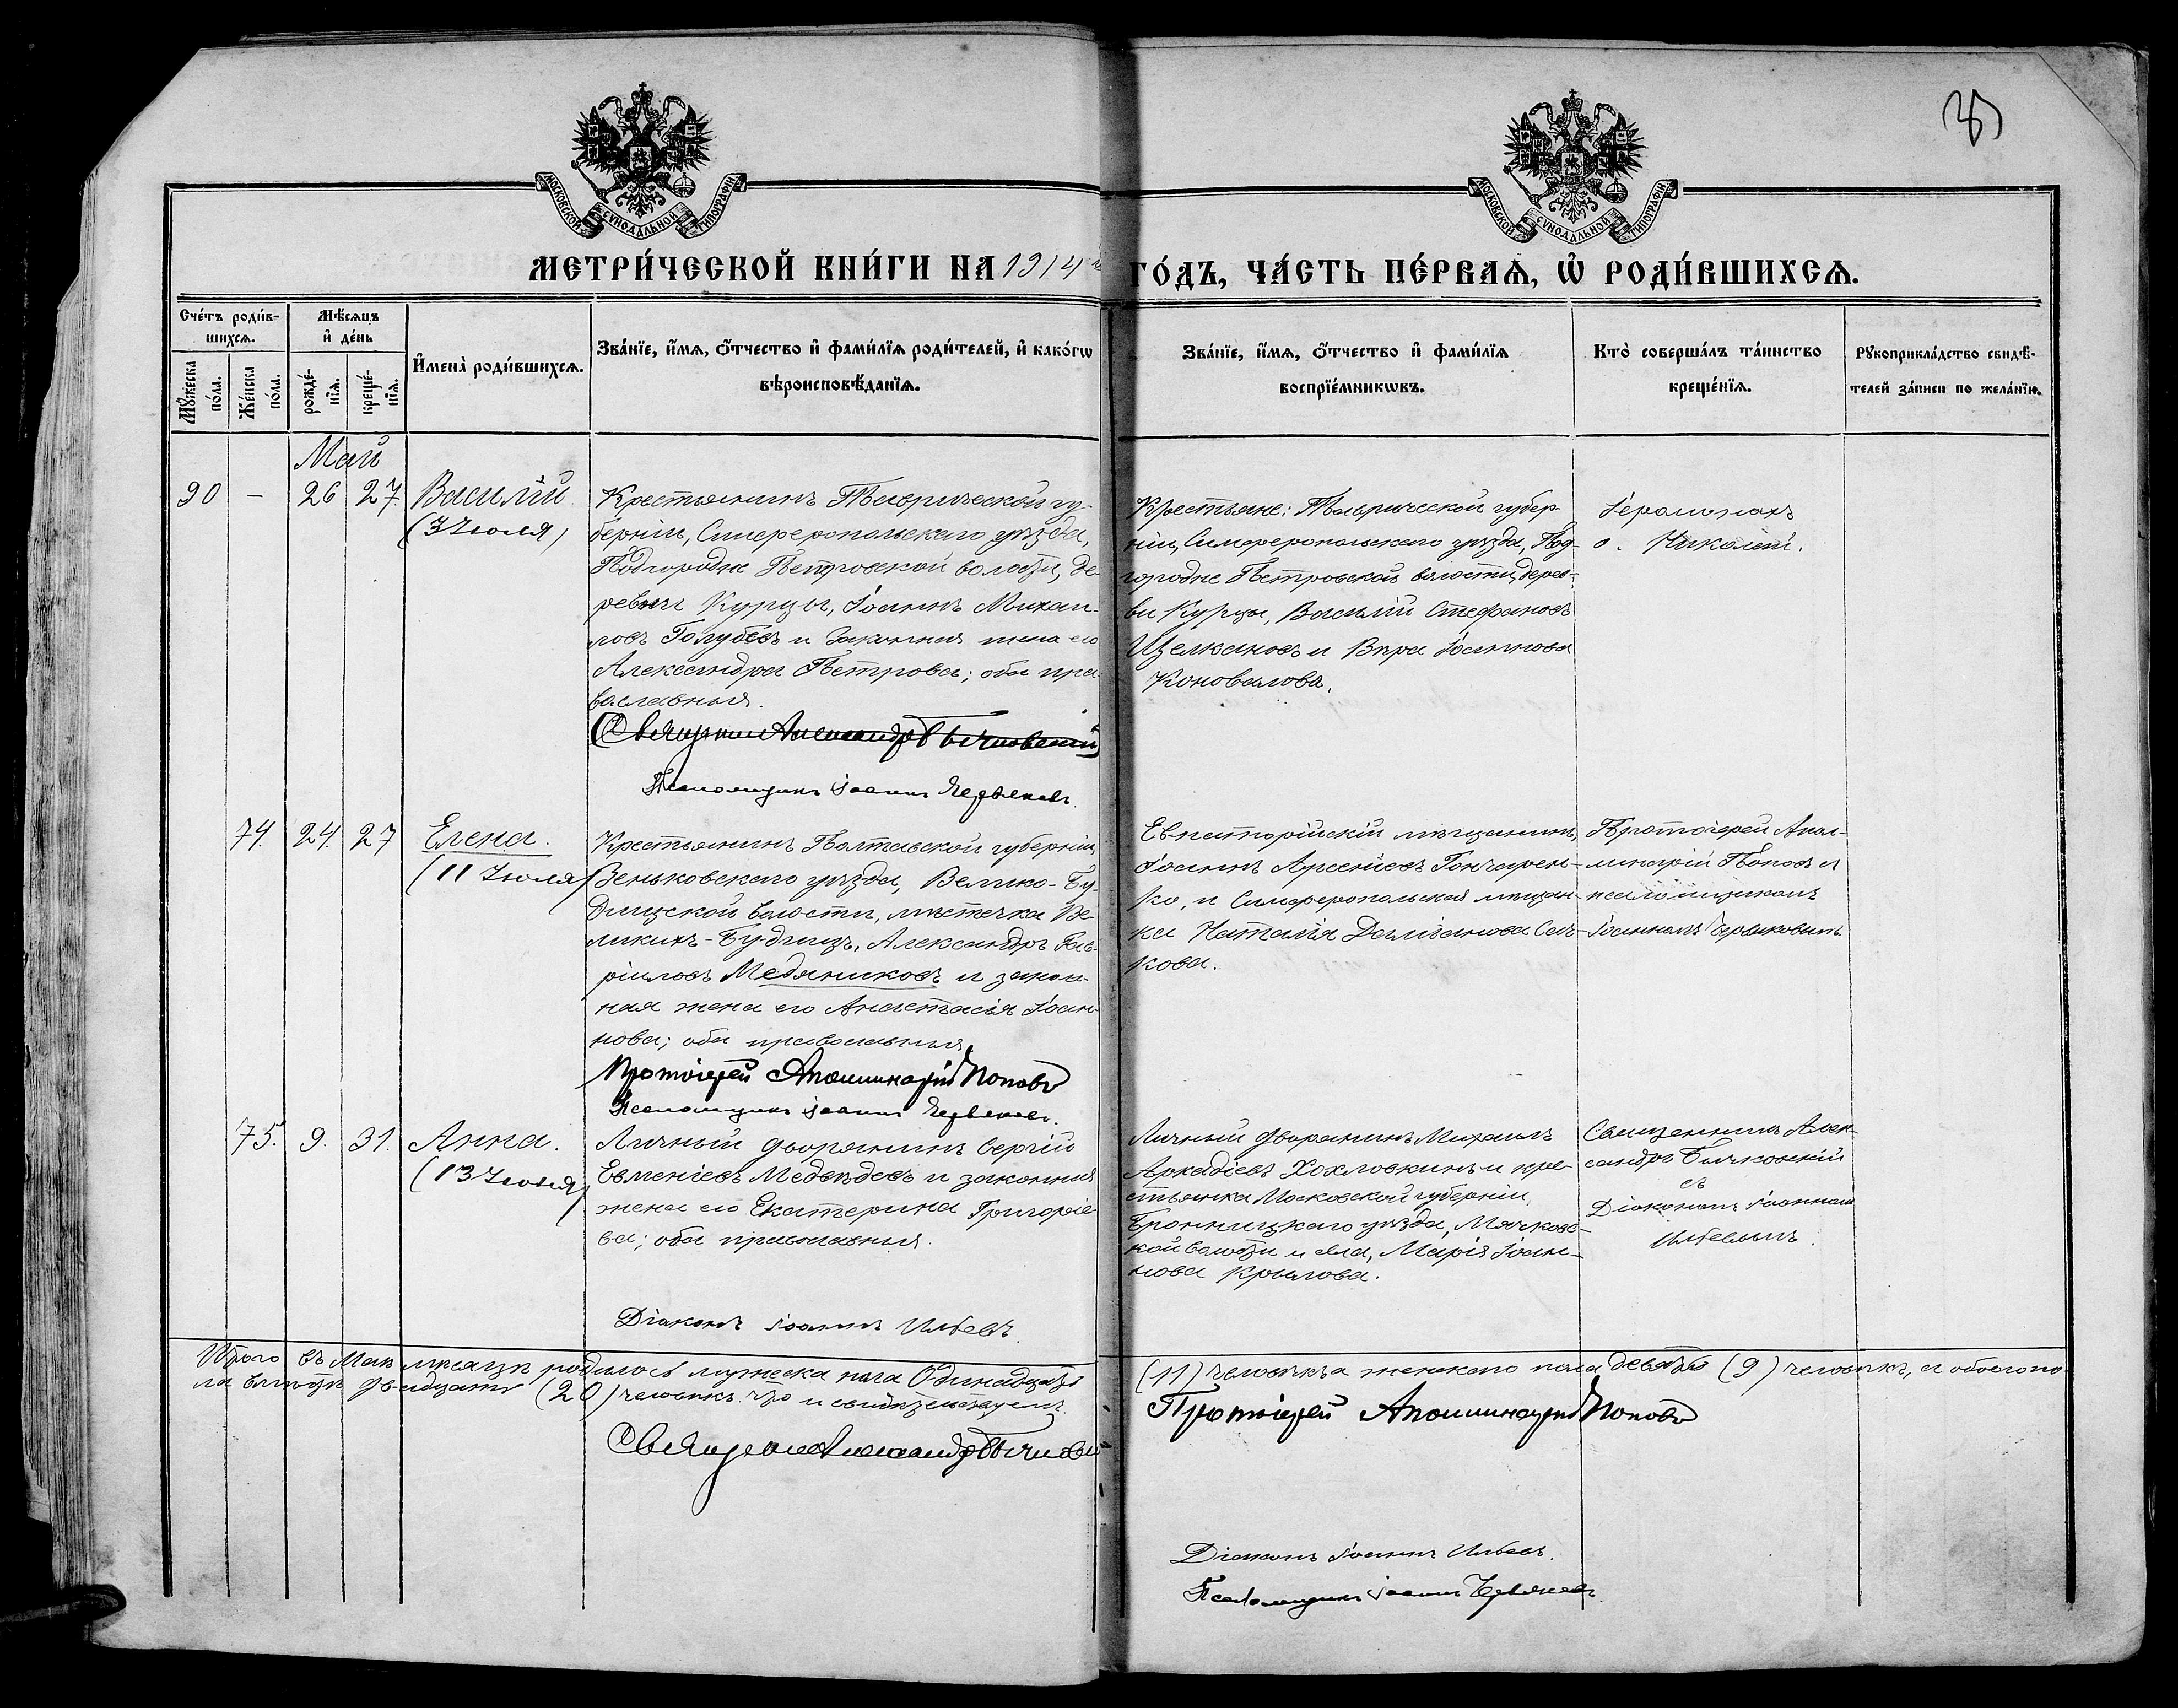 МОСКОВСКОЙ СУНОДАЛЬНОЙ ТИПОГРАФІИ
МОСКОВСКОЙ СУНОДАЛЬНОЙ ТИПОГРАФІИ
МЕТРИ́ЧЕСКОЙ КНИ́ГИ НА 1914 й
ГО́ДЪ, ЧА́СТЬ ПЕ́РВАѦ, Ѡ҆ РОДИ́ВШИХСѦ.
Сче́тъ роди́в-
шихсѧ.
Мѣ́сѧцъ
и҆ де́нь
Мꙋ́жеска
по́ла.
Же́нска
по́ла.
рожде́-
нїѧ.
креще́-
нїѧ.
И҆мена̀ роди́вшихсѧ.
Зва́нїе, и҆́мѧ, ѻ҆́тчество и҆ фами́лїѧ роди́телей, и҆ како́гѡ
вѣроисповѣ́данїѧ.
Зва́нїе, и҆́мѧ, ѻ҆́тчество и҆ фами́лїѧ
воспрїе́мникѡвъ.
Кто̀ соверша́лъ та́инство
креще́нїѧ.
Рꙋкоприкла́дство свидѣ́-
телей за́писи по жела́нїю.
Май
90 – 26 27. Василій
(3 Іюля)
Крестьянинъ Таврической гу-
берніи, Симферопольскаго уѣзда,
Подгородне Петровской волости, де-
ревни Курцы, Іоаннъ Михаи-
ловъ Голубевъ и законная жена его
Александра Петрова; оба пра-
вославныя.
Священникъ Александръ Бычковскій
Псаломщикъ Іоаннъ Червяковъ.
Крестьяне: Таврической губер-
ніи, Симферопольскаго уѣзда, Под-
городне Петровской волости, дерев-
ни Курцы, Василій Стефановъ
Щелкановъ и Вѣра Іоаннова
Коновалова.
Іеромонахъ
о. Николай.
74. 24. 27 Елена.
(11 Іюля)
Крестьянинъ Полтавской губерніи,
Зеньковскаго уѣзда, Велико-Бу-
дищской волости, мѣстечка Ве-
ликихъ-Будищъ, Александръ Гав-
ріиловъ Медяниковъ и закон-
ная жена его Анастасія Іоан-
нова; оба православныя.
Протоіерей Аполлинарій Поповъ
Псаломщикъ Іоаннъ Червяковъ.
Евпаторійскій мѣщанинъ,
Іоаннъ Арсеніевъ Гончарен-
ко, и Симферопольская мѣщан-
ка Наталія Даміанова Сач-
кова.
Протоіерей Апол-
линарій Поповъ съ
псаломщикомъ
Іоанномъ Червяковымъ
75. 9. 31. Анна.
(13 Іюля)
Личный дворянинъ Сергій
Евменіевъ Медвѣдевъ и законная
жена его Екатерина Григоріе-
ва; оба православныя.
Діаконъ Іоаннъ Ильбевъ.
Личный дворянинъ Михаилъ
Аркадіевъ Хохловкинъ и кре-
стьянка Московской губерніи,
Бронницкаго уѣзда, Мячковс-
кой волости и села, Марія Іоан-
нова Крылова.
Священникъ Алек-
сандръ Бычковскій
съ
Діакономъ Іоанномъ
Итого въ Маѣ мѣсяцѣ родилось мужеска пола Одинадцать (11) человѣкъ а женскаго пола девять (9) человѣкъ, а обоего по-
ла вмѣстѣ двадцать (20) человѣкъ что и свидѣтельствуемъ.
Священникъ Александръ Бычковскій
Протоіерей Аполлинарій Поповъ
Діаконъ Іоаннъ Ильбевъ.
Псаломщикъ Іоаннъ Червяковъ.